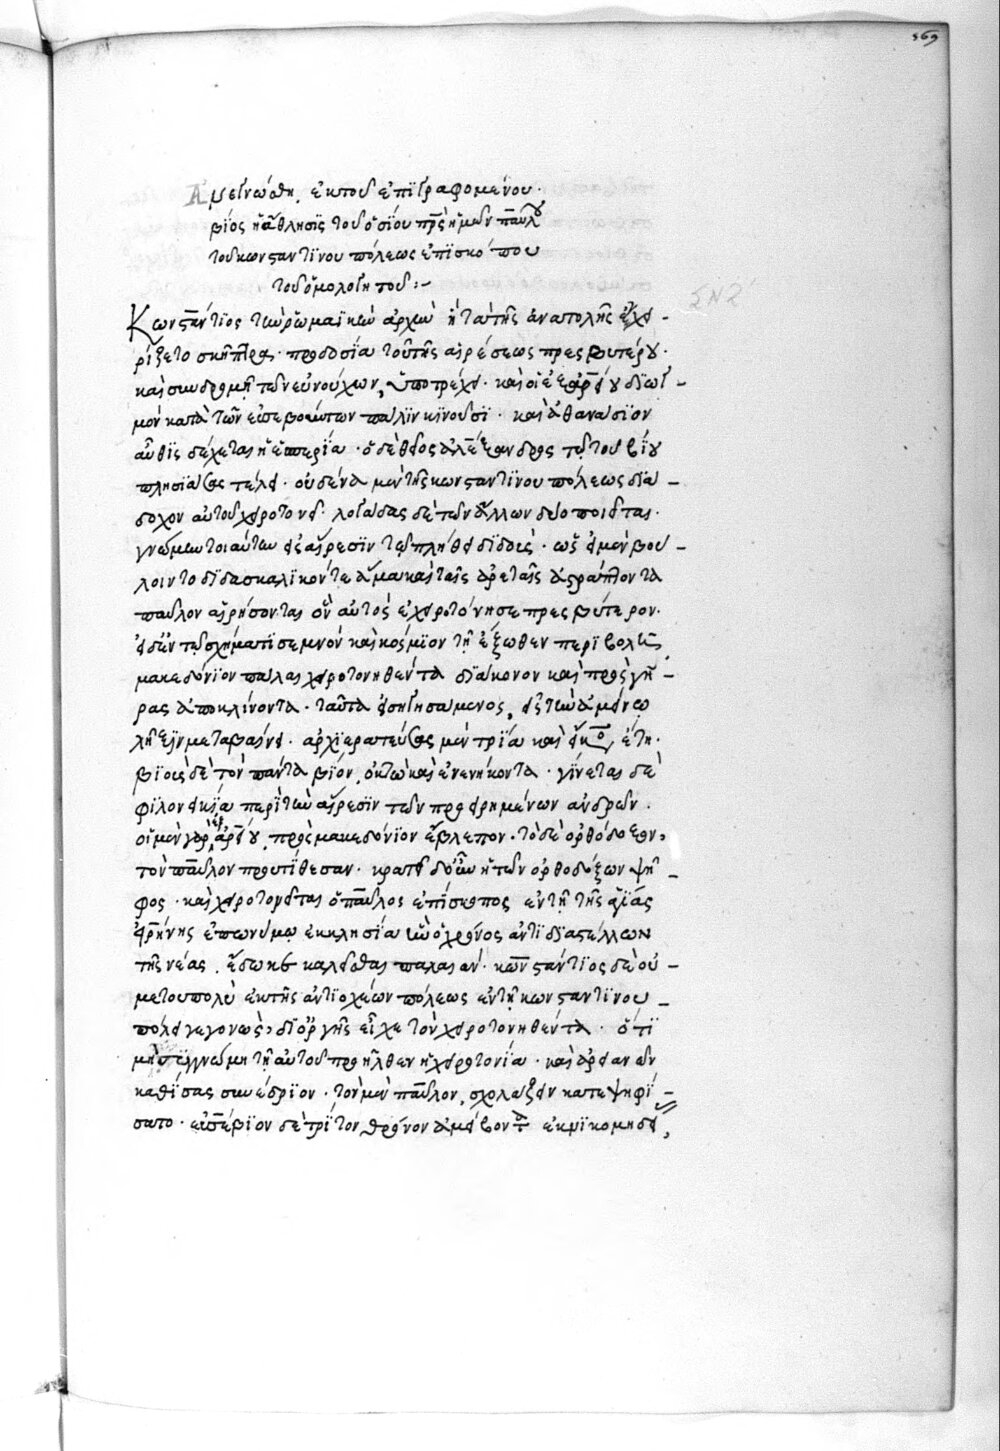 569
Ἀνεγνώσθη ἐκ τοῦ ἐπιγραφομένου·
βίος ἢ ἄθλησις τοῦ ὁσίου πρς ἡμῶν παύλου
τοῦ κωνσταντίνου πόλεως ἐπισκόπου
τοῦ ὁμολογητοῦ:-
Κωνστάντιος τῶν ῥωμαϊκῶν ἀρχῶν ἡνίκα τῆς ἀνατολῆς
ρίζετο σκῆπτρα· προδοσία τοῦ τῆς αἱρέσεως πρεσβυτέρου·
καὶ συνδρομῇ τῶν εὐνούχων, ὑποτρέχει· καὶ οἱ ἐξ ἀρείου διωγ-
μὸν κατὰ τῶν εὐσεβούντων πάλιν κινοῦσι· καὶ ἀθανάσιον
αὖθις δέχεται ἡ ἑσπερία· ὁ δὲ θεῖος ἀλέξανδρος τῷ τοῦ βίου
πλησιάσας τέλει· οὐδένα μὲν τῆς κωνσταντίνου πόλεως διά-
δοχον αὐτοῦ χειροτονεῖ· λογάδας δὲ τῶν ἄλλων δύο ποιεῖται·
γνώμων τοιαύτων ἐξαίρεσιν τῷ πλήθει διδούς· ὡς εἰ μὲν βού-
λοιντο διδασκαλικόν τε ἅμα καὶ ταῖς ἀρεταῖς ἀστράπτοντα
παῦλον αἱρήσονται ὃν αὐτὸς ἐχειροτόνησε πρεσβύτερον·
εἰ δ' οὖν τῷ σχήματι σεμνὸν καὶ κόσμιον τῇ ἔξωθεν περιβολῇ
μακεδόνιον πάλαι χειροτονηθέντα διάκονον καὶ πρὸς γῆ-
ρας ἀποκλίνοντα· ταῦτα εἰσηγησάμενος, εἰς τὴν ἀμείνω
λῆξιν μεταβαίνει· ἀρχιερατεύσας μὲν τρία καὶ εἴκο, ἔτη·
βιοὺς δὲ τὸν πάντα βίον, ὀκτὼ καὶ ἐνενήκοντα· γίνεται δὲ
φιλονεικία περὶ τὴν αἵρεσιν τῶν προειρημένων ἀνδρῶν·
οἱ μὲν γὰρ ἐξ ἀρείου, πρὸς μακεδόνιον ἔβλεπον· τὸ δὲ ὀρθόδοξον,
τὸν παῦλον προυτίθεσαν· κρατεῖ δ' οὖν ἡ τῶν ὀρθοδόξων ψῆ-
φος· καὶ χειροτονεῖται ὁ παῦλος ἐπίσκοπος ἐν τῇ τῆς ἁγίας
εἰρήνης ἐπωνύμῳ ἐκκλησίᾳ ἣν ὁ χρόνος ἀντιδιαστέλλων
τῆς νέας, ἔδωκε καλεῖσθαι παλαιάν· κωνστάντιος δὲ οὐ
μετουπολὺ ἐκ τῆς ἀντιοχέων πόλεως ἐν τῇ κωνσταντίνου
πόλει γεγονώς, δι' ὀργῆς εἶχε τὸν χειροτονηθέντα· ὅτι
μὴ γνώμῃ τῇ αὐτοῦ προῆλθεν ἡ χειροτονία· καὶ ἀρειανῶν
καθίσας συνέδριον· τὸν μὲν παῦλον, σχολάζειν κατεψηφί-
σατο· εὐσέβιον δὲ τρίτον θρόνον ἀμείβοντα ἐκ νικομηδεί,